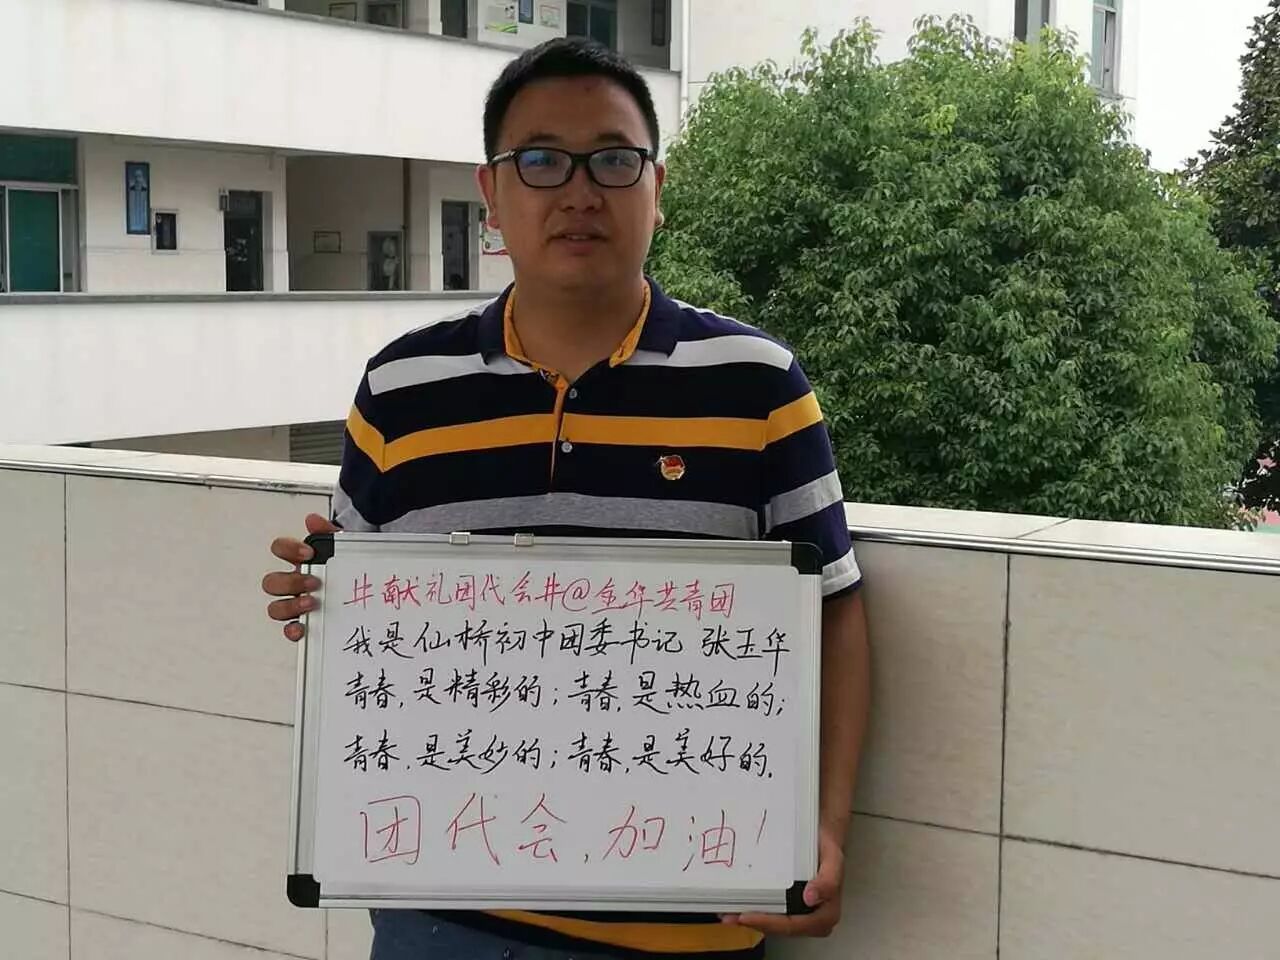 #献礼团代会#@金华共青团
我是仙桥初中团委书记 张玉华
青春,是精彩的;青春,是热血的;
青春,是美妙的;青春,是美好的.
团代会,加油!